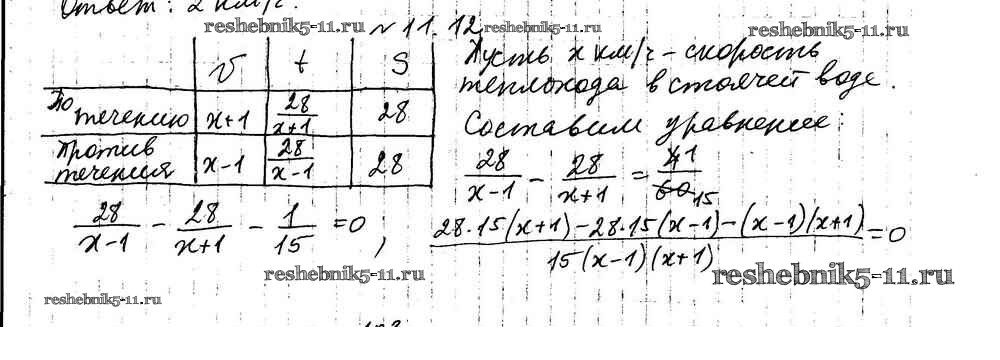 Ответ: 2 км/ч.
reshebnik5-11.ru № 11.12 reshebnik5-11.ru reshebnik5-11.ru
v t S
По течению x+1 28/(x+1) 28
Против течения x-1 28/(x-1) 28
Пусть x км/ч - скорость
теплохода в стоячей воде.
Составим уравнение:
28/(x-1) - 28/(x+1) = 4̶1/6̶0̶15
28/(x-1) - 28/(x+1) - 1/15 = 0;
(28·15(x+1) - 28·15(x-1) - (x-1)(x+1))/(15(x-1)(x+1)) = 0
reshebnik5-11.ru reshebnik5-11.ru
reshebnik5-11.ru